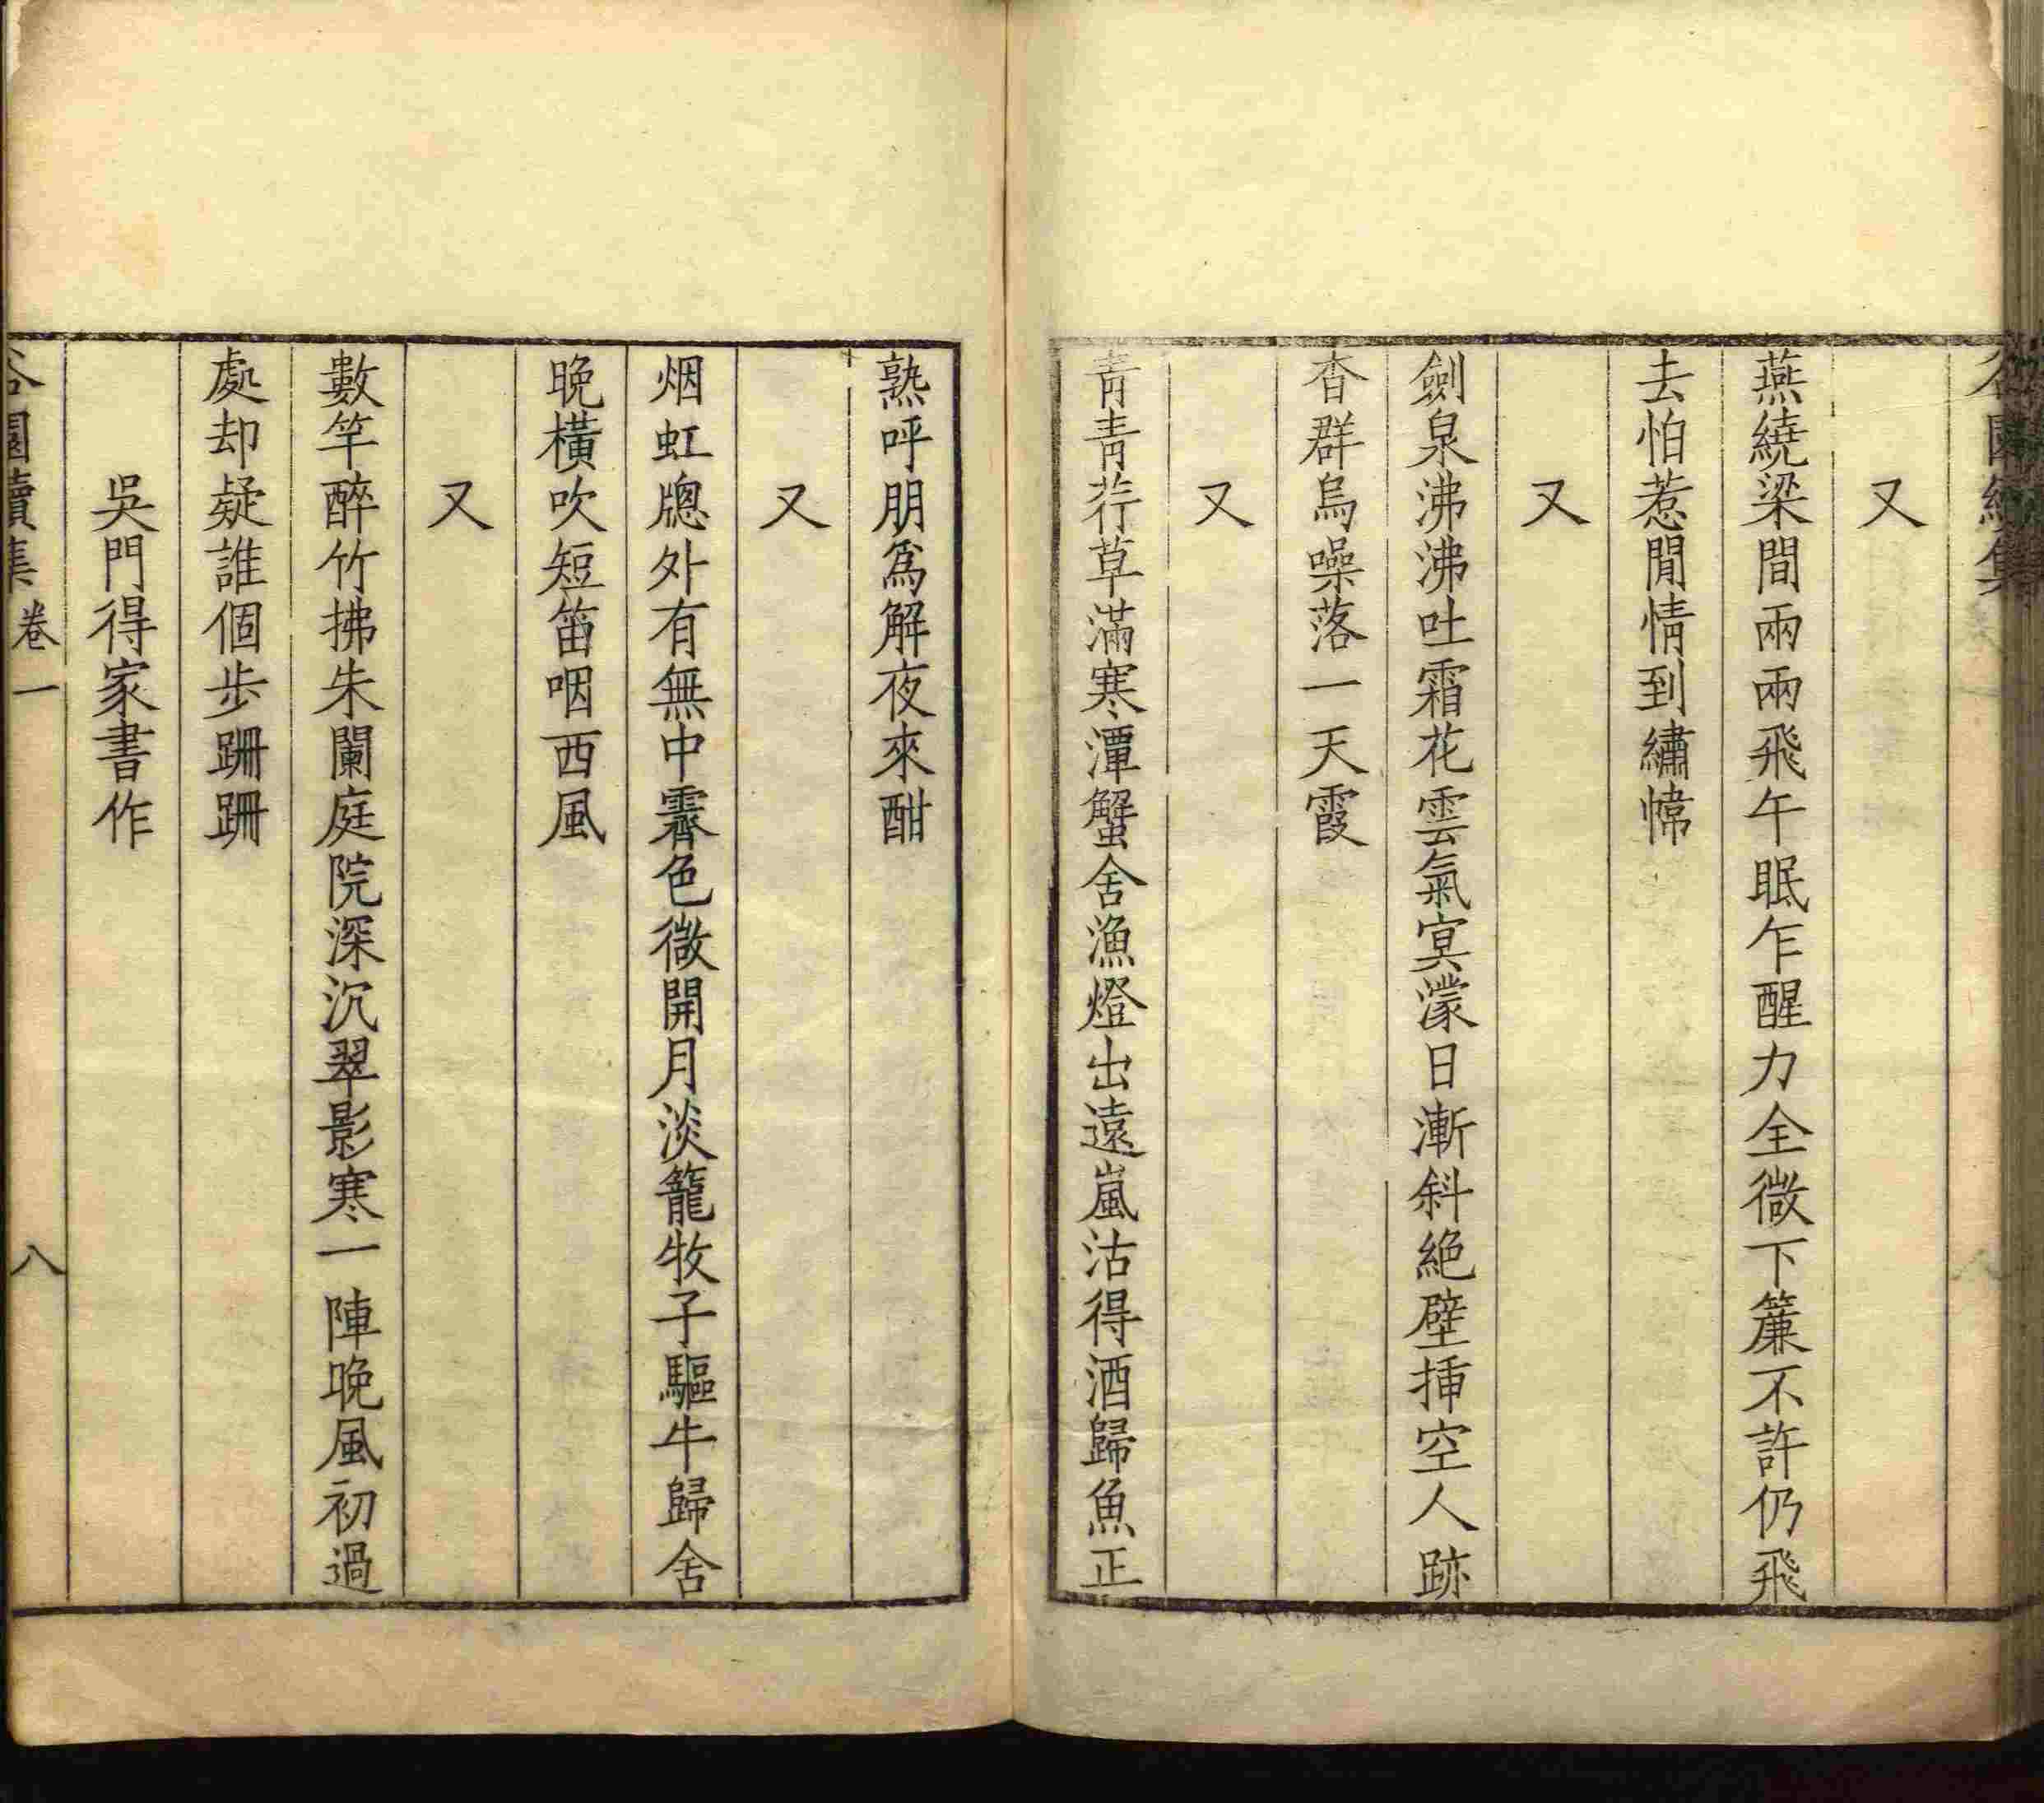 又
燕繞梁間兩兩飛午眠乍醒力全微下簾不許仍飛
去怕惹閒情到繡幃
又
劍泉沸沸吐霜花雲氣冥濛日漸斜絕壁揷空人跡
杳群烏噪落一天霞
又
靑靑荇草滿寒潭蟹舍漁燈出遠嵐沽得酒歸魚正
熟呼朋爲解夜來酣
又
烟虹牕外有無中霽色微開月淡籠牧子驅牛歸舍
晚橫吹短笛咽西風
又
數竿醉竹拂朱闌庭院深沉翠影寒一陣晚風初過
處却疑誰個步跚跚
吳門得家書作
園續集卷一
八